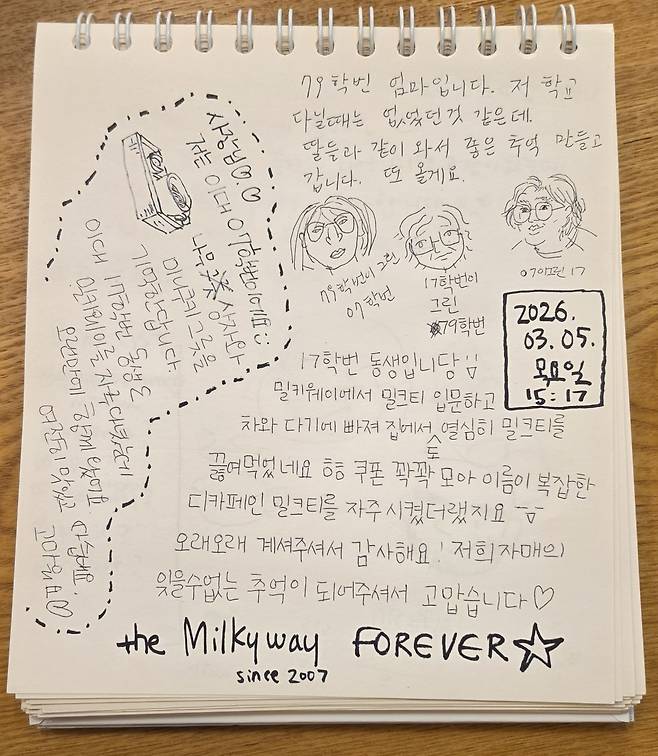 79학번 엄마입니다. 저 학교
다닐때는 없었던것 같은데.
딸들과 같이 와서 좋은 추억 만들고
갑니다. 또 올게요.
79학번이 그린
07학번
17학번이
그린
79학번
07이 그린 17
2026.
03.05.
목요일
15:17
사장님♡.♡
저는 이대 07학번이에요 :)
나무 상자와
미니쿠키 그릇을
기억한답니다
이대 17학번 동생도
밀키웨이를 자주 다녔는데
오랜만에 함께 왔어요
여전히 맛있고 다행예요!
고마워요♡
17학번 동생입니당
밀키웨이에서 밀크티 입문하고
차와 다기에 빠져 집에서도 열심히 밀크티를
끓여먹었네요 ㅎㅎ 쿠폰 꽉꽉 모아 이름이 복잡한
디카페인 밀크티를 자주 시켰더랬지요
오래오래 계셔주셔서 감사해요! 저희 자매의
잊을수없는 추억이 되어주셔서 고맙습니다♡
the Milkyway FOREVER☆
since 2007